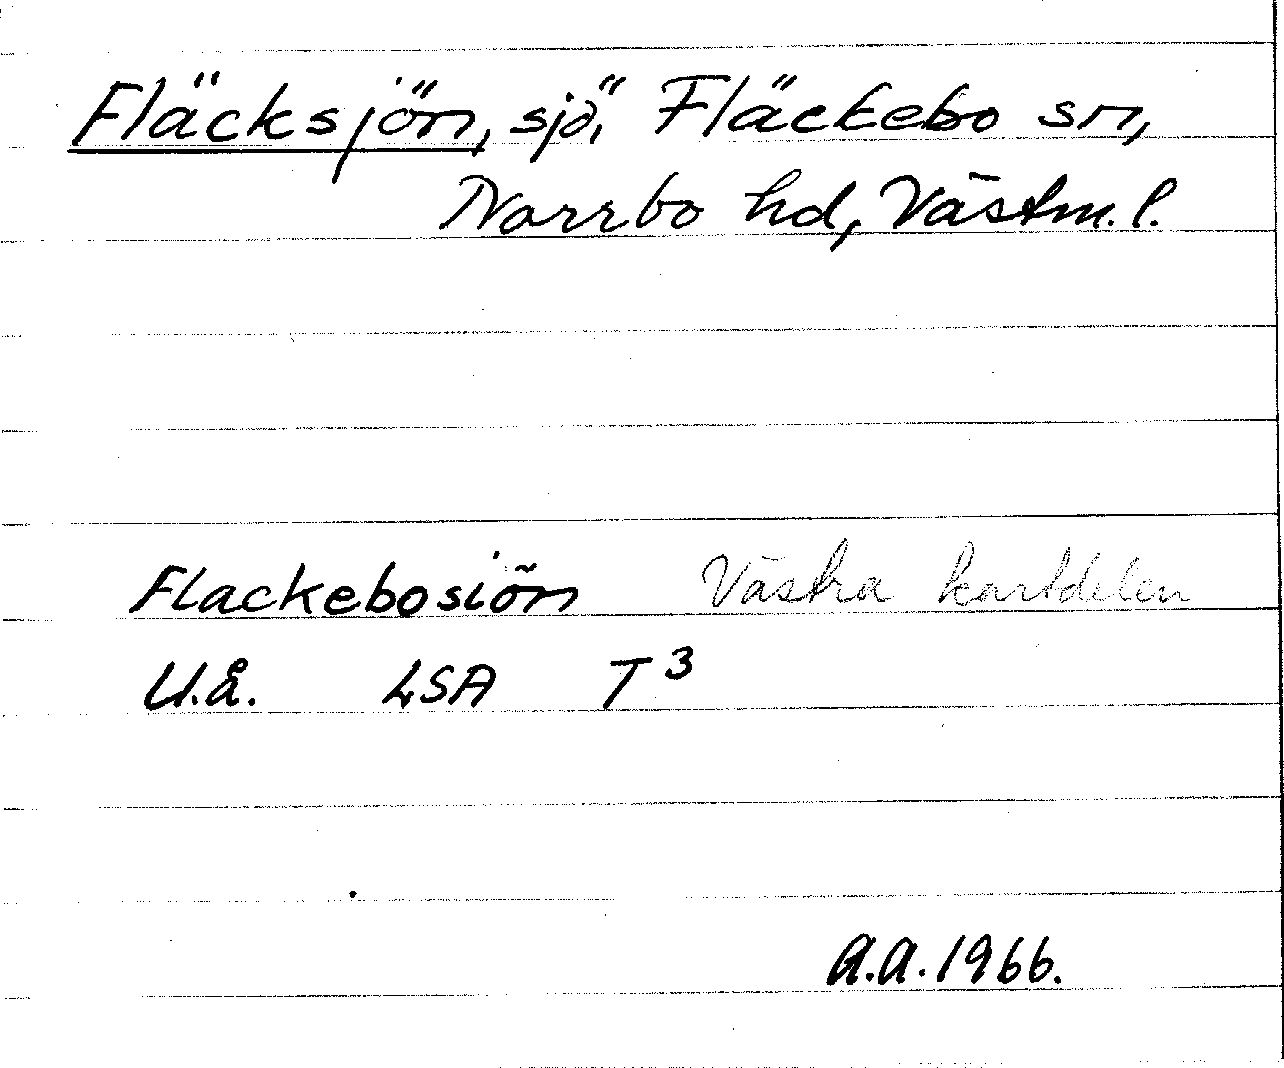 Fläcksjön, sjö, Fläckebo sn,
Norrbo hd, Västm. l.
Flackebosiön Västra kartdelen
U.å. LSA T³
A.A. 1966.